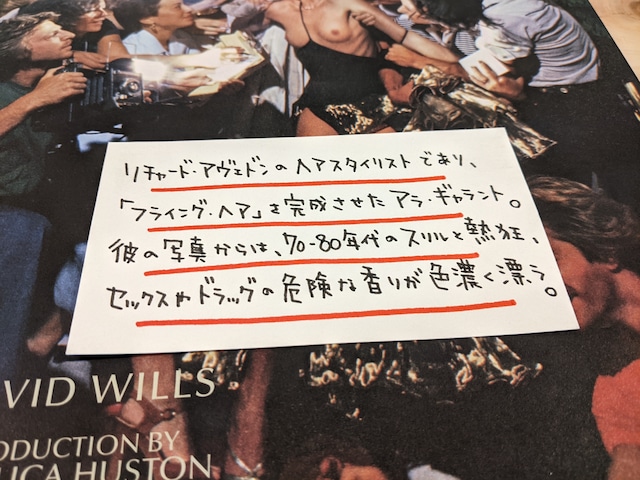 リチャード・アヴェドンのヘアスタイリストであり、
「フライング・ヘア」を完成させたアラ・ギャラント。
彼の写真からは、70-80年代のスリルと熱狂、
セックスやドラッグの危険な香りが色濃く漂う。
VID WILLS
ODUCTION BY
LICA HUSTON